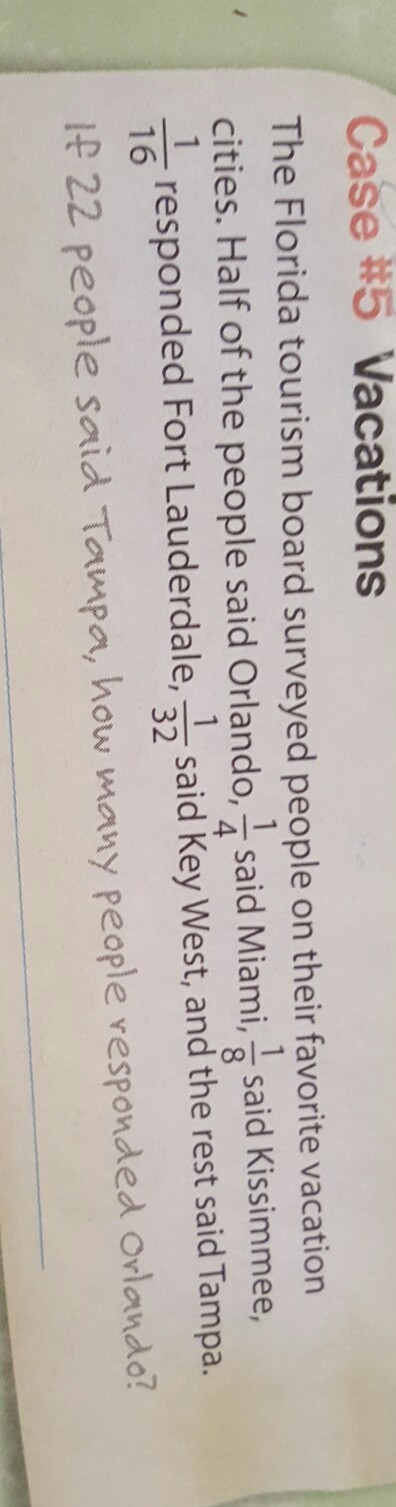 Case #5 Vacations
The Florida tourism board surveyed people on their favorite vacation
cities. Half of the people said Orlando, 1/4 said Miami, 1/8 said Kissimmee,
1/16 responded Fort Lauderdale, 1/32 said Key West, and the rest said Tampa.
If 22 people said Tampa, how many people responded Orlando?